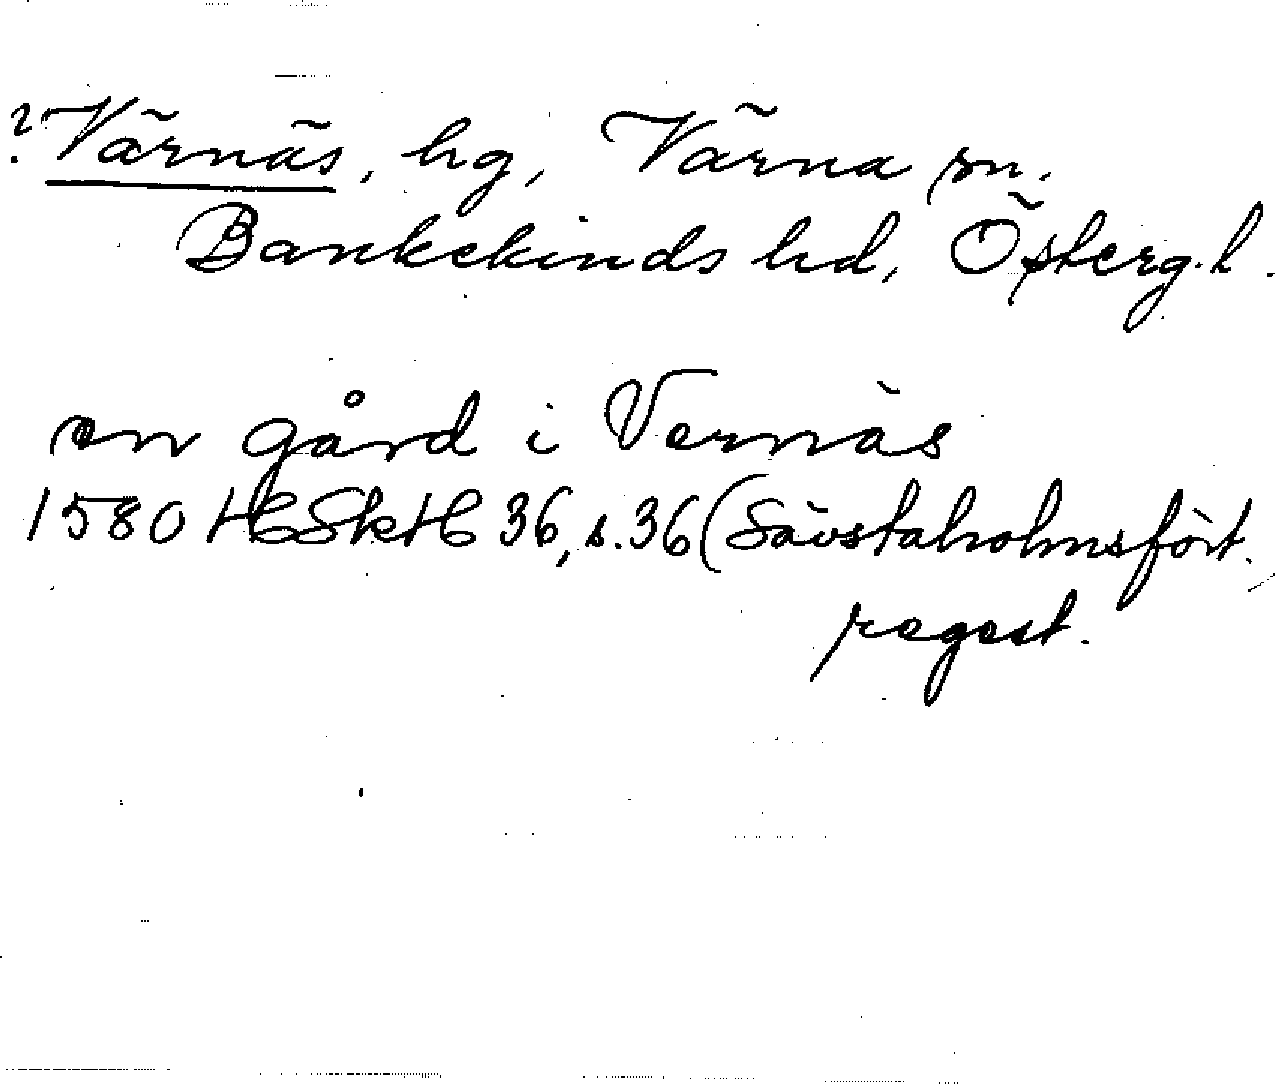 ? Värnäs, hg, Värna sn.
Bankekinds hd, Österg. l.
en gård i Vernäs
1580 HSkH 36, s. 36 (Sävstaholmsfört.
regest.